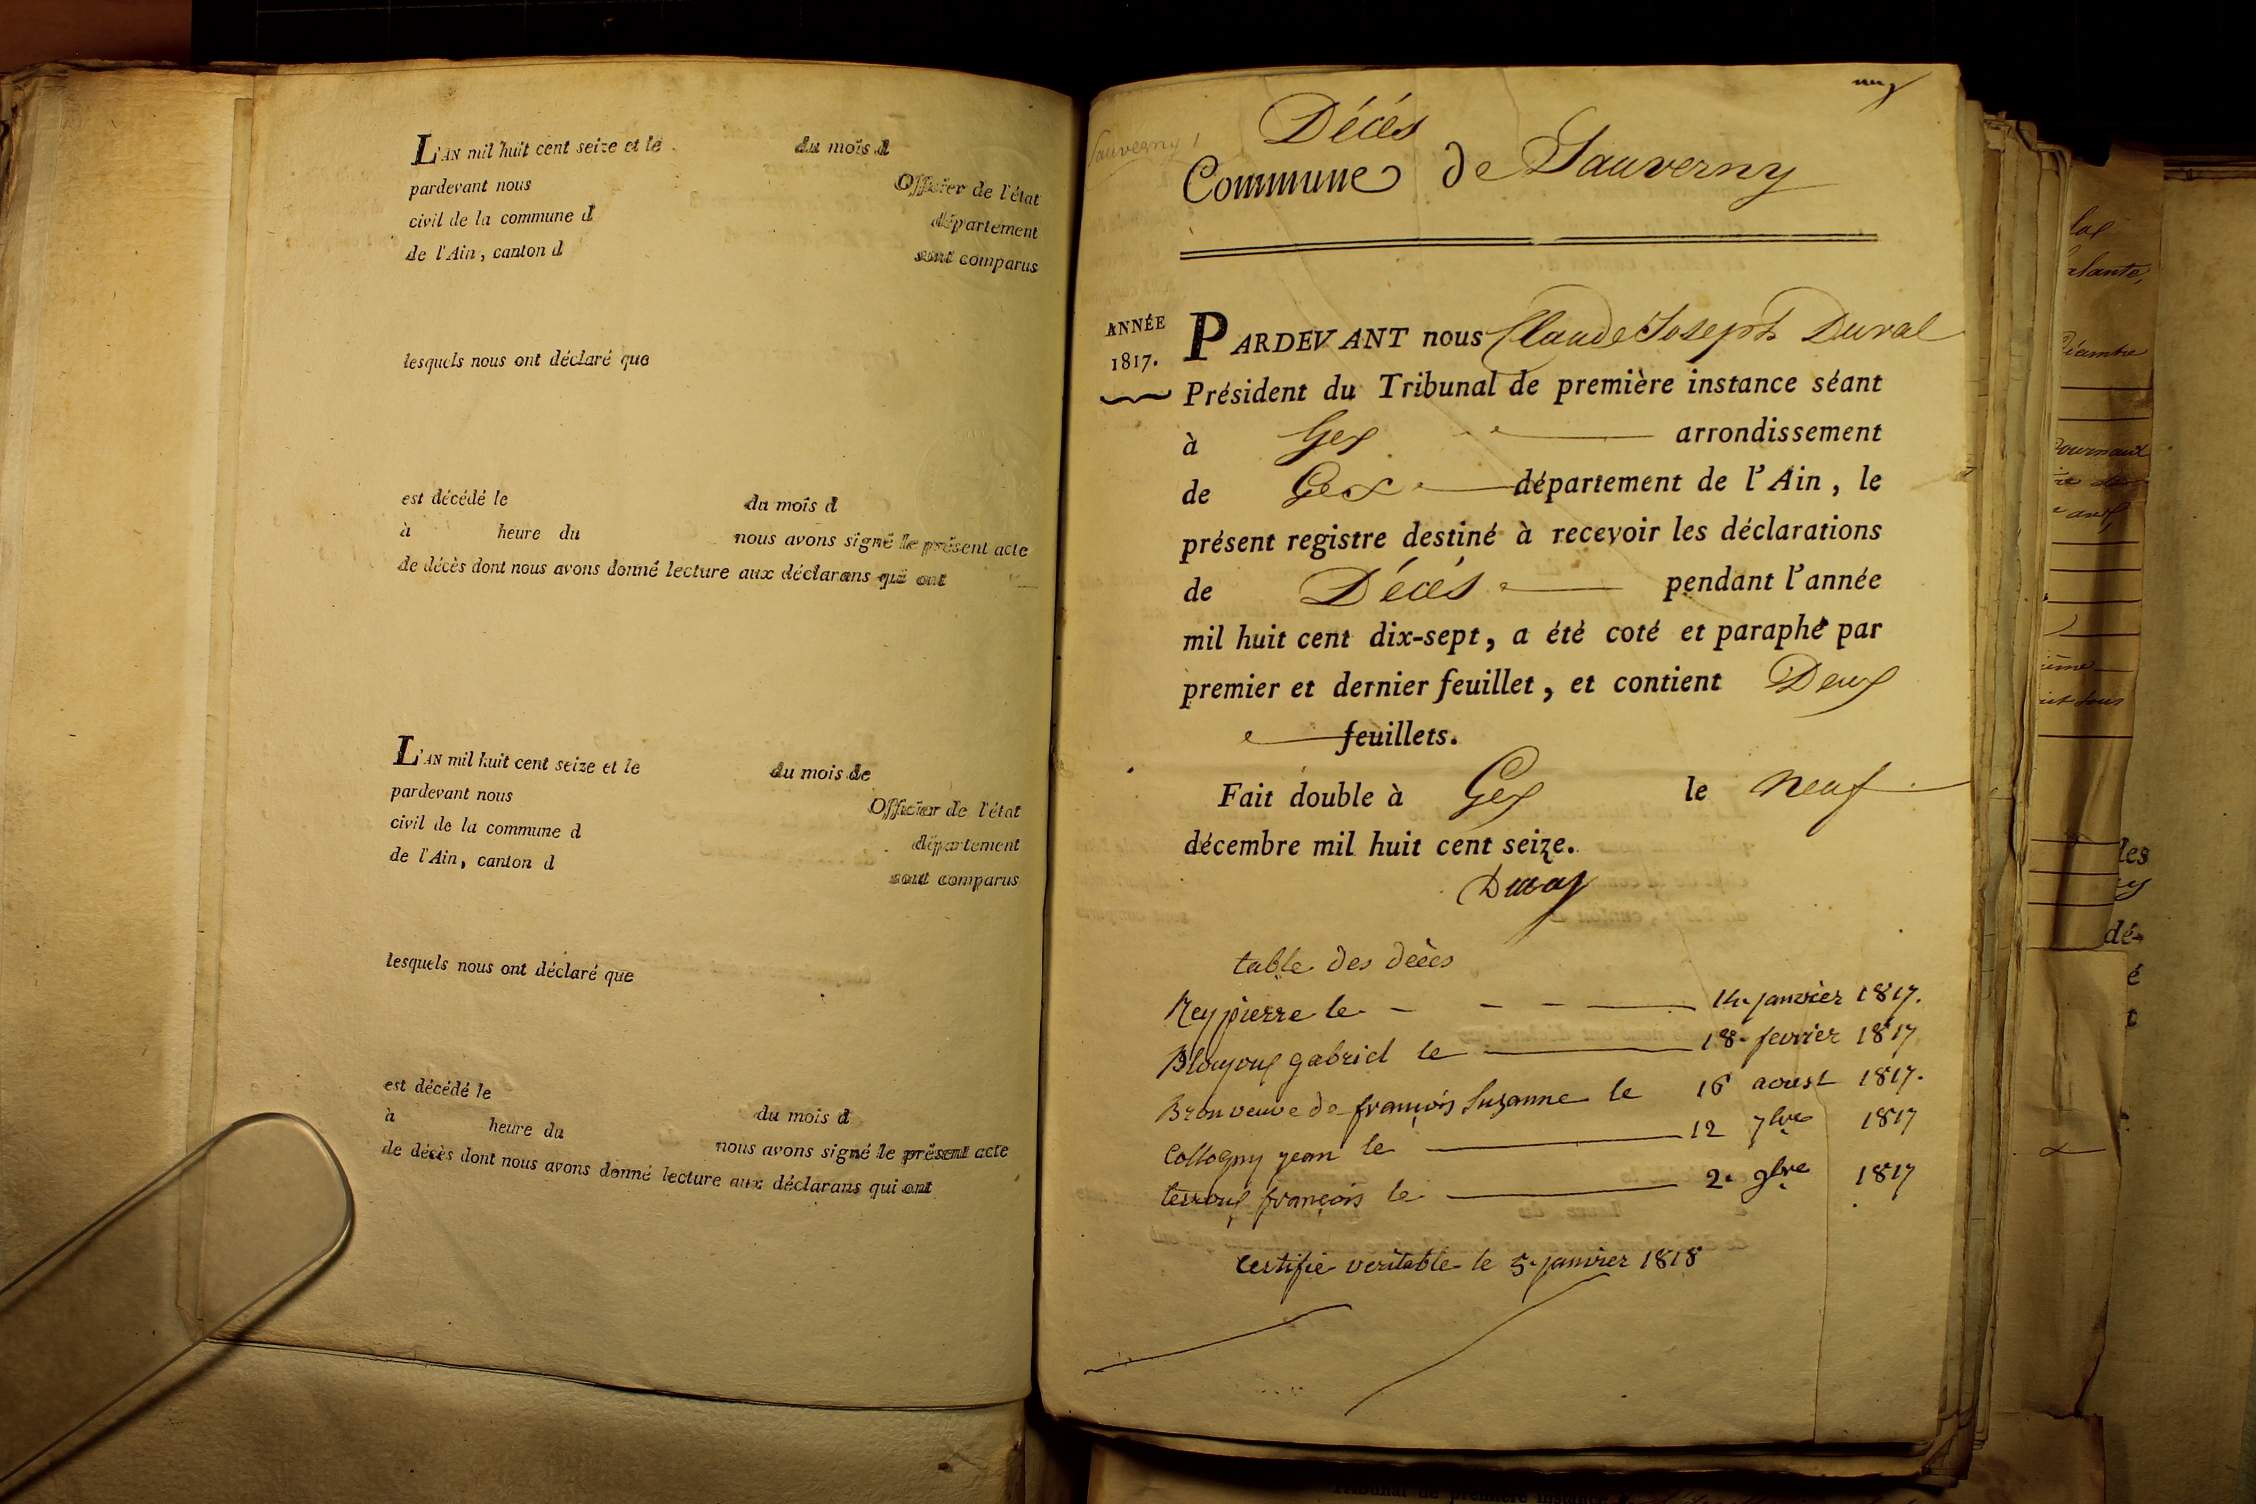 L'AN mil huit cent seize et le du mois d
pardevant nous Officier de l'état
civil de la commune d département
de l'Ain, canton d sont comparus
lesquels nous ont déclaré que
est décédé le du mois d
à heure du nous avons signé le présent acte
de décès dont nous avons donné lecture aux déclarans qui ont
L'AN mil huit cent seize et le du mois de
pardevant nous Officier de l'état
civil de la commune d département
de l'Ain, canton d sont comparus
lesquels nous ont déclaré que
est décédé le du mois d
à heure du nous avons signé le présent acte
de décès dont nous avons donné lecture aux déclarans qui ont
Sauverny 1
Décés
Commune de Sauverny
ANNÉE
1817.
PARDEVANT nous Claude Joseph Duval
Président du Tribunal de première instance séant
à Gex arrondissement
de Gex département de l'Ain, le
présent registre destiné à recevoir les déclarations
de Décés pendant l'année
mil huit cent dix-sept, a été coté et paraphé par
premier et dernier feuillet, et contient Deux
feuillets.
Fait double à Gex le neuf
décembre mil huit cent seize.
Duval
table des décès
Rey pierre le 14. janvier 1817.
gabriel le 18. fevrier 1817
Bron veuve de françois Suzanne le 16 aoust 1817.
Collogny jean le 12 7bre 1817
terroux françois le 2. 9bre 1817
certifié veritable le 5. janvier 1818